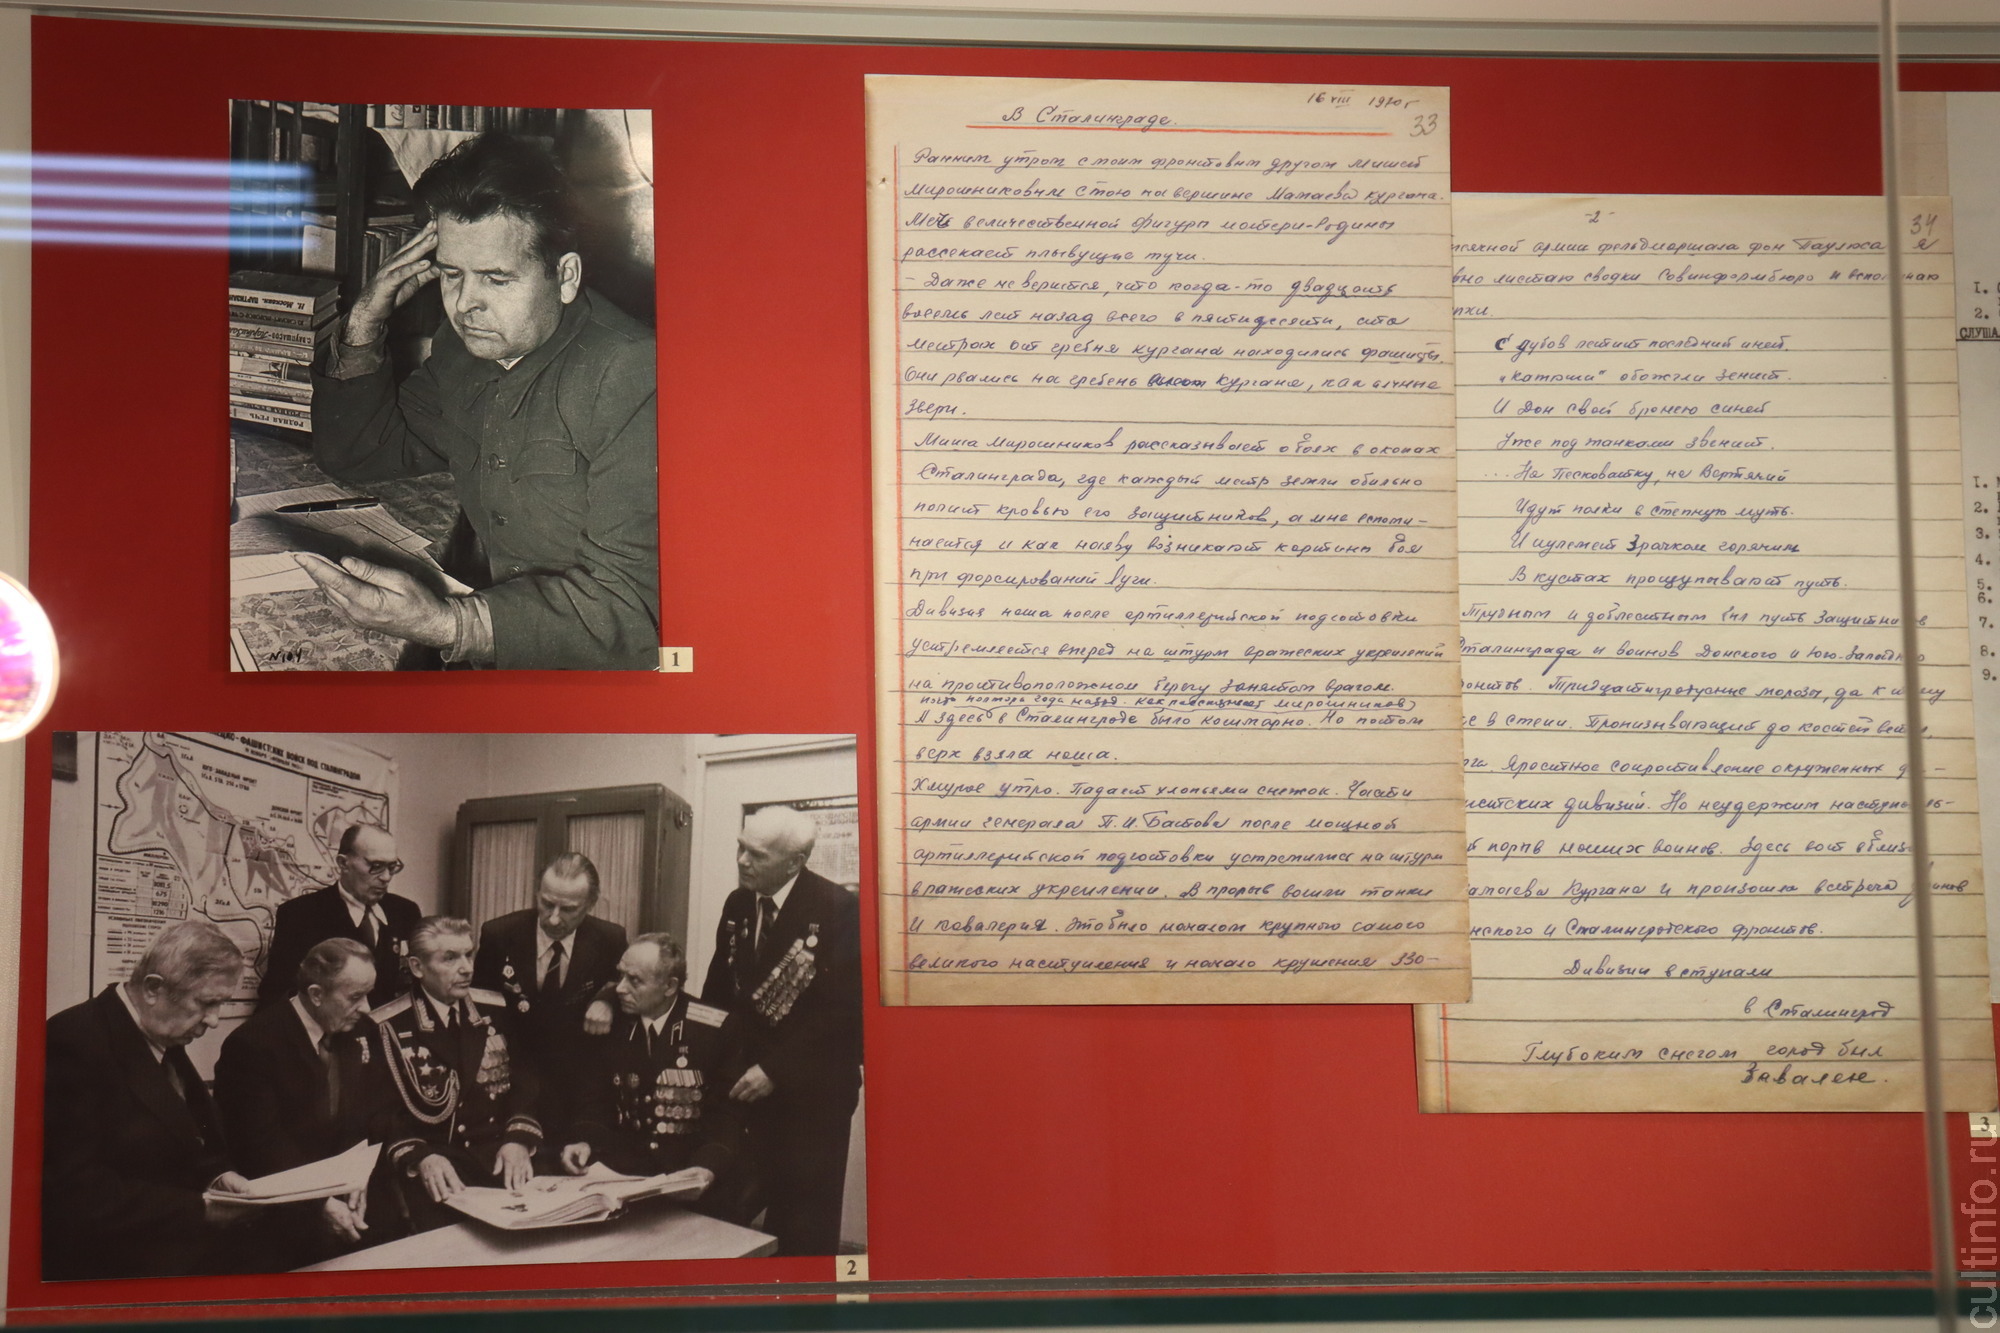 Н. Москвин. ПАРТИЗАН
РОДНАЯ РЕЧЬ
N 104
1
ФАШИСТСКИХ ВОЙСК ПОД СТАЛИНГРАДОМ
2
16 VIII 1970 г
33
В Сталинграде.
Ранним утром с моим фронтовым другом Мишей
Мирошниковым стою на вершине Мамаева кургана.
Меч величественной фигуры матери-Родины
рассекает плывущие тучи.
- Даже не верится, что когда-то двадцать
восемь лет назад всего в пятидесяти, ста
метрах от гребня кургана находились фашисты.
Они рвались на гребень кургана, как
звери.
Миша Мирошников рассказывает о боях в окопах
Сталинграда, где каждый метр земли обильно
полит кровью его защитников, а мне вспоми-
нается и как наяву возникают картины боя
при форсировании
Дивизия наша после артиллерийской подготовки
устремляется вперед на штурм вражеских укреплений
на противоположном берегу занятом врагом.
полтора года назад. как рассказывает Мирошников
А здесь в Сталинграде было кошмарно. Но потом
верх взяла наша.
Хмурое утро. Падает хлопьями снежок. Части
армии генерала П.И. Батова после мощной
артиллерийской подготовки устремились на штурм
вражеских укреплений. В прорыв вошли танки
и кавалерия. Это было началом крупного самого
великого наступления и начало крушения 330-
-2-
34
тысячной армии фельдмаршала фон Паулюса я
листаю сводки Совинформбюро и вспоминаю
С дубов летит последний иней.
"Катюши" обожгли зенит.
И Дон свой бронею синей
Уже под танками звенит.
... На Песковатку, на Вертячий
Идут полки в степную муть.
И пулемет зрачком горячим
В кустах прощупывает путь.
Трудным и доблестным был путь защитников
Сталинграда и воинов Донского и Юго-Западного
фронтов. Тридцатиградусные морозы, да к тому
же в степи. Пронизывающий до костей ветер,
Яростное сопротивление окруженных фа-
шистских дивизий. Но неудержим наступатель-
ый порыв наших воинов. Здесь вот вблизи
Мамаева Кургана и произошла встреча воинов
Донского и Сталинградского фронтов.
Дивизии вступали
в Сталинград
Глубоким снегом город был
Завален.
3
СЛУША
1.
2.
1.
2.
3.
4.
5.
6.
7.
8.
9.
cultinfo.ru